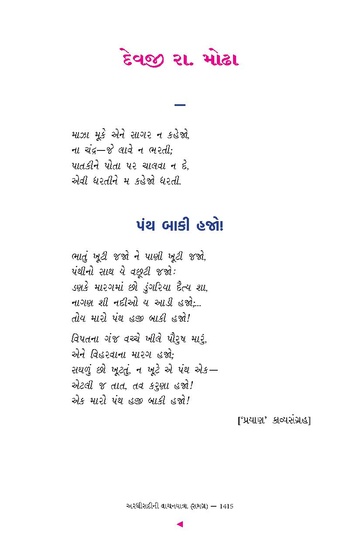 દેવજી રા. મોઢા
—
માઝા મૂકે એને સાગર ન કહેજો,
ના ચંદ્ર—જે લાવે ન ભરતી;
પાતકીને પોતા પર ચાલવા ન દે,
એવી ધરતીને મ કહેજો ધરતી.
પંથ બાકી હજો!
ભાતું ખૂટી જજો ને પાણી ખૂટી જજો,
પંથીનો સાથ યે વછૂટી જજો:
ડણકે મારગમાં છો ડુંગરિયા દૈત્ય શા,
નાગણ શી નદીઓ ય આડી હજો;...
તોય મારો પંથ હજી બાકી હજો!
વિપતના ગંજ વચ્ચે ખીલે પૌરુષ મારું,
એને વિહરવાના મારગ હજો;
સઘળું છો ખૂટતું, ન ખૂટે એ પંથ એક—
એટલી જ તાત, તવ કરુણા હજો!
એક મારો પંથ હજી બાકી હજો!
['પ્રયાણ' કાવ્યસંગ્રહ]
અરધીસદીની વાચનયાત્રા (સમગ્ર) — 1415